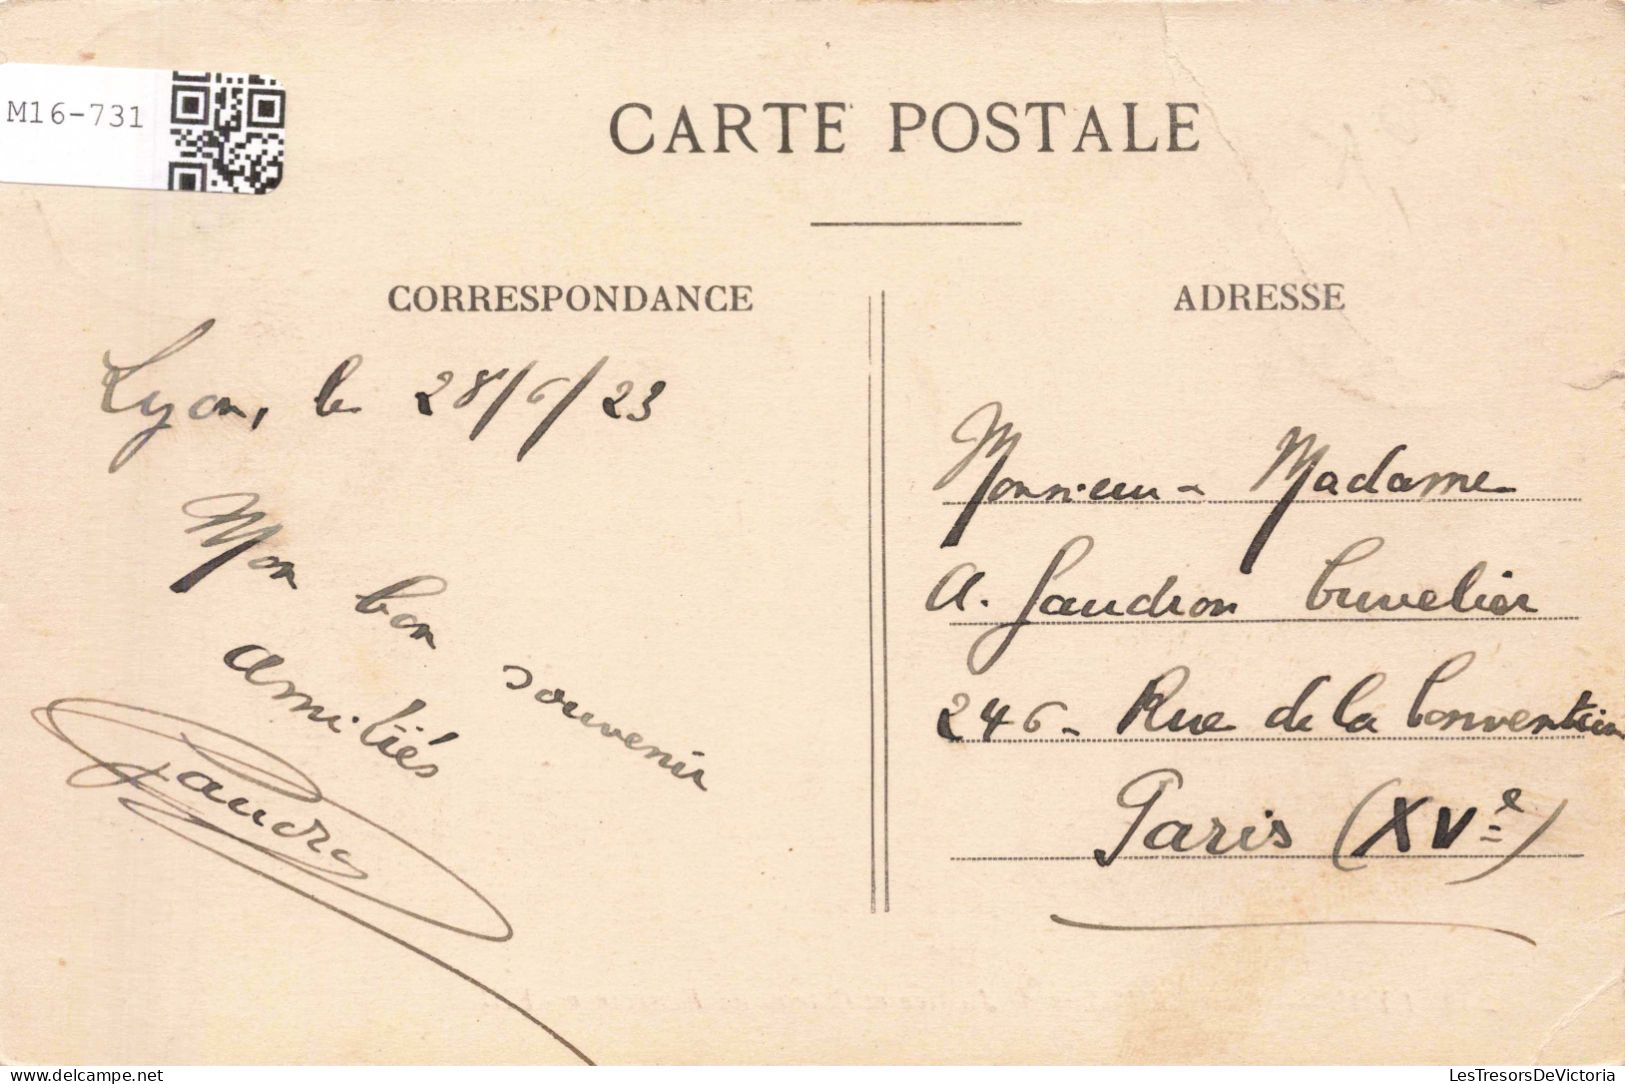 M16-731
CARTE POSTALE
CORRESPONDANCE
Lyon, le 28/6/23
Mon bon souvenir
amitiés
ADRESSE
Monsieur - Madame
A. Gaudron Cuvelier
246 - Rue de la Convention
Paris (XVe)
LesTresorsDeVictoria